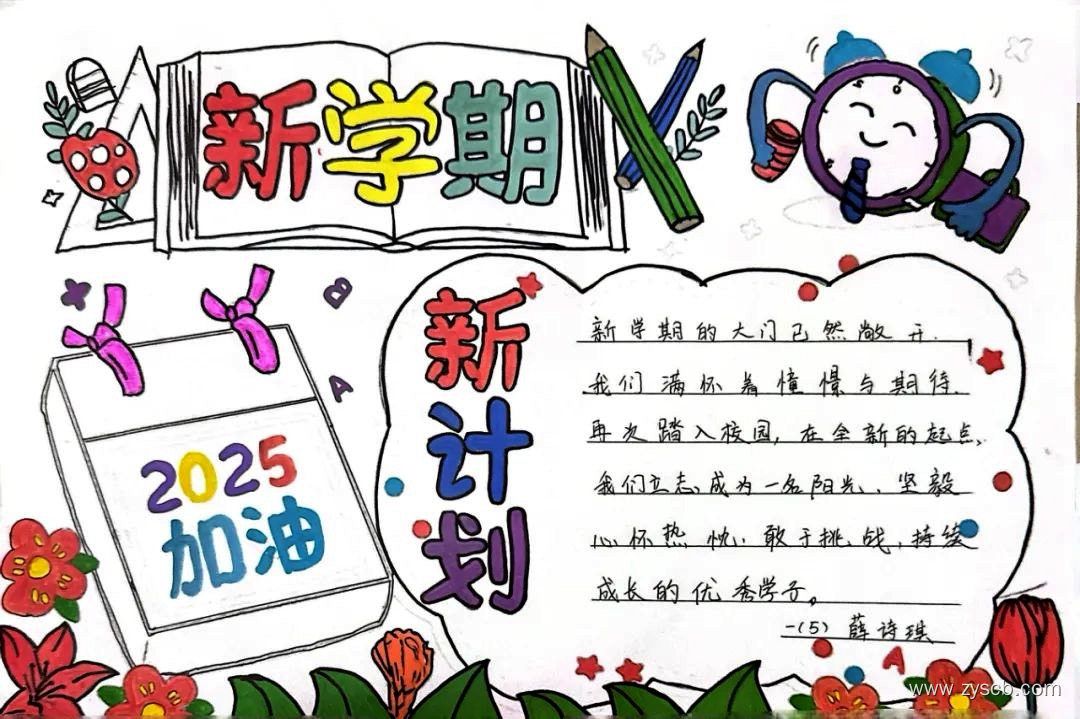 新学期
B
A
2025
加油
新
计
划
新学期的大门已然敞开.
我们满怀着憧憬与期待.
再次踏入校园,在全新的起点,
我们立志成为一名阳光、坚毅
心怀热忱、敢于挑战,持续
成长的优秀学子。
一(5) 薛诗琪
A
www.zyscb.com